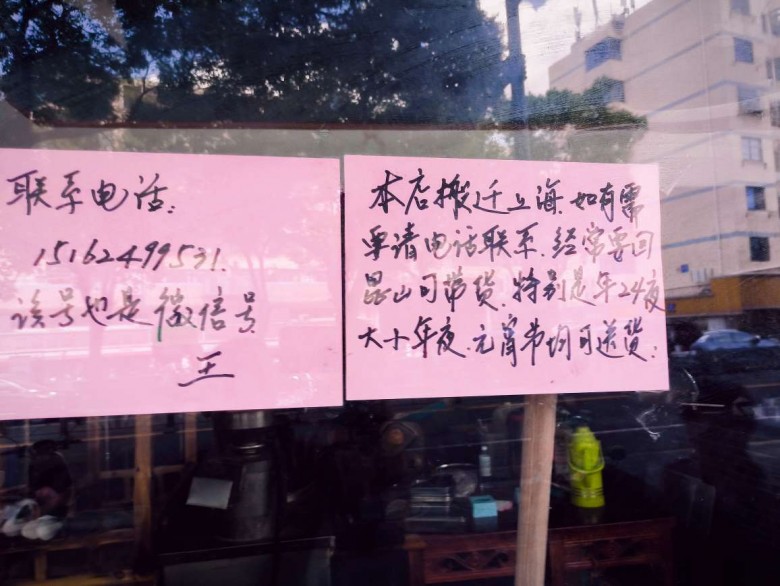 联系电话:
15162499531.
该号也是微信号
王
本店搬迁上海.如有需
要请电话联系.经常要回
昆山可带货.特别是年24夜
大十年夜.元宵节均可送货.